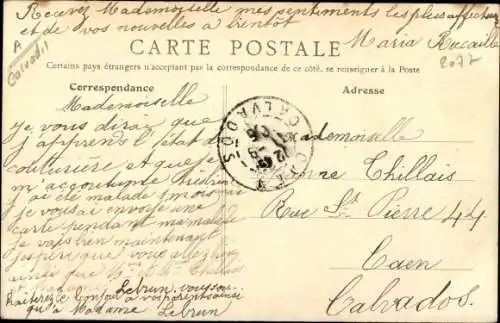 Recevez Mademoiselle mes sentiments les plus affectueux
et de vos nouvelles à bientôt
Maria
A
Calvados
2077
CARTE POSTALE
Certains pays étrangers n'acceptant pas la correspondance de ce côté, se renseigner à la Poste
Correspondance
Adresse
Mademoiselle
je vous dirai que
j'apprens l'état de
couturière et que je
m'accoutume
j'ai été malade 1 mois
je vous ai envoyé une
carte pendant ma maladie
je vais bien maintenant
j'espère que vous allez
ainsi que Thillais
Lebrun
le bonjour à vos parents ainsi
qu'à Madame Lebrun
CALVADOS
Mademoiselle
Thillais
Rue St Pierre 44
Caen
Calvados